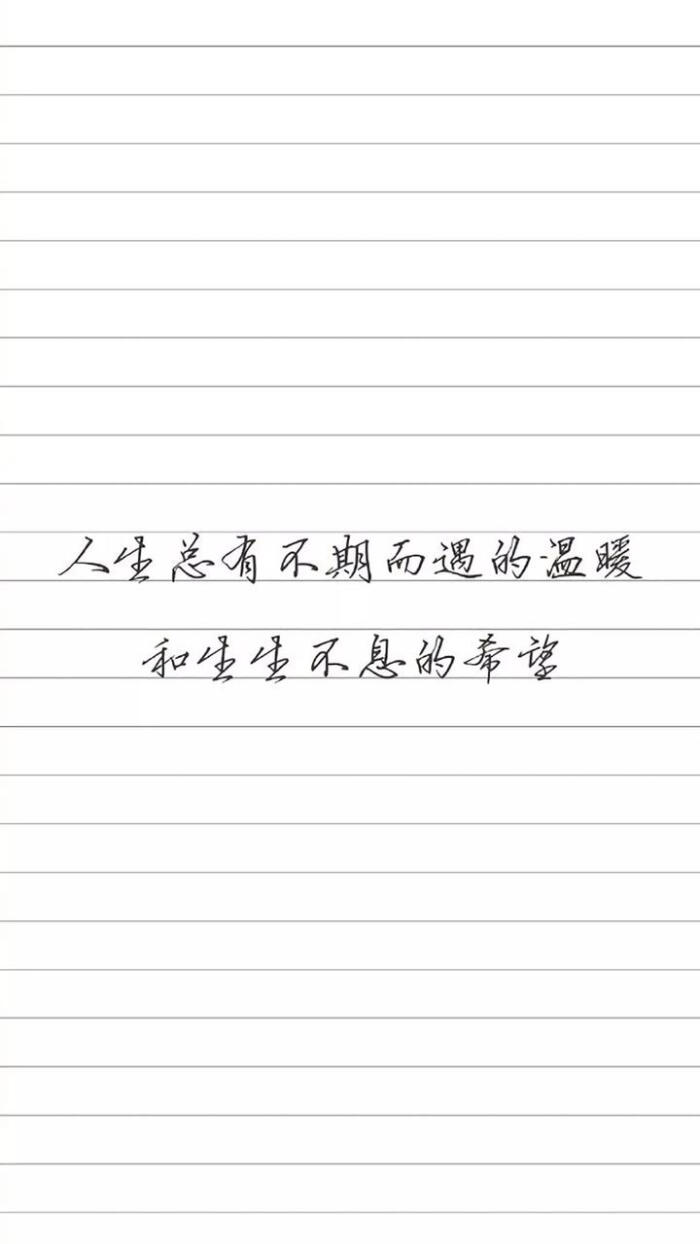 人生总有不期而遇的温暖
和生生不息的希望